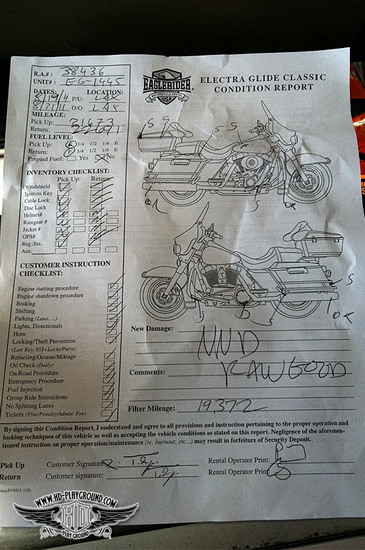 R.A.#: 38436
UNIT#: EG-1445
EAGLERIDER
ELECTRA GLIDE CLASSIC
CONDITION REPORT
DATES: LOCATION:
P/U: LAX
8/21/11 D/O LAS
MILEAGE:
Pick Up: 31673
Return:
FUEL LEVEL:
Pick Up: 3/4 1/2 1/4 E
Return: 3/4 1/2 1/4 E
Prepaid Fuel: Yes No
INVENTORY CHECKLIST:
Pick Up: Return:
Windshield
Ignition Key
Cable Lock
Disc Lock
Helmet#
Raingear #
Jacket #
GPS#
Reg./Ins.
Aux.
CUSTOMER INSTRUCTION
CHECKLIST:
Engine starting procedure
Engine shutdown procedure
Braking
Shifting
Parking (Laws, ...)
Lights, Directionals
Horn
Locking/Theft Prevention
(Lost Key, $)
Refueling/Octane/Mileage
Oil Check (Daily)
On Road Procedure
Emergency Procedure
Fuel Injection
Group Ride Instructions
No Splitting Lanes
Tickets (Fine/Penalty/Admin. Fee)
S S S S
S
S
New Damage: NND
Comments:
Filter Mileage: 19,372
By signing this Condition Report, I understand and agree to all provisions and instruction pertaining to the proper operation and
locking techniques of this vehicle as well as accepting the vehicle conditions as stated on this report. Negligence of the aforemen-
tioned instruction on proper operation/maintenance (ie: burnout, etc...) may result in forfeiture of Security Deposit.
Pick Up Customer Signature: Rental Operator Print:
Return Customer signature: Rental Operator Print:
WWW.HD-PLAYGROUND.COM
HD
PLAYGROUND